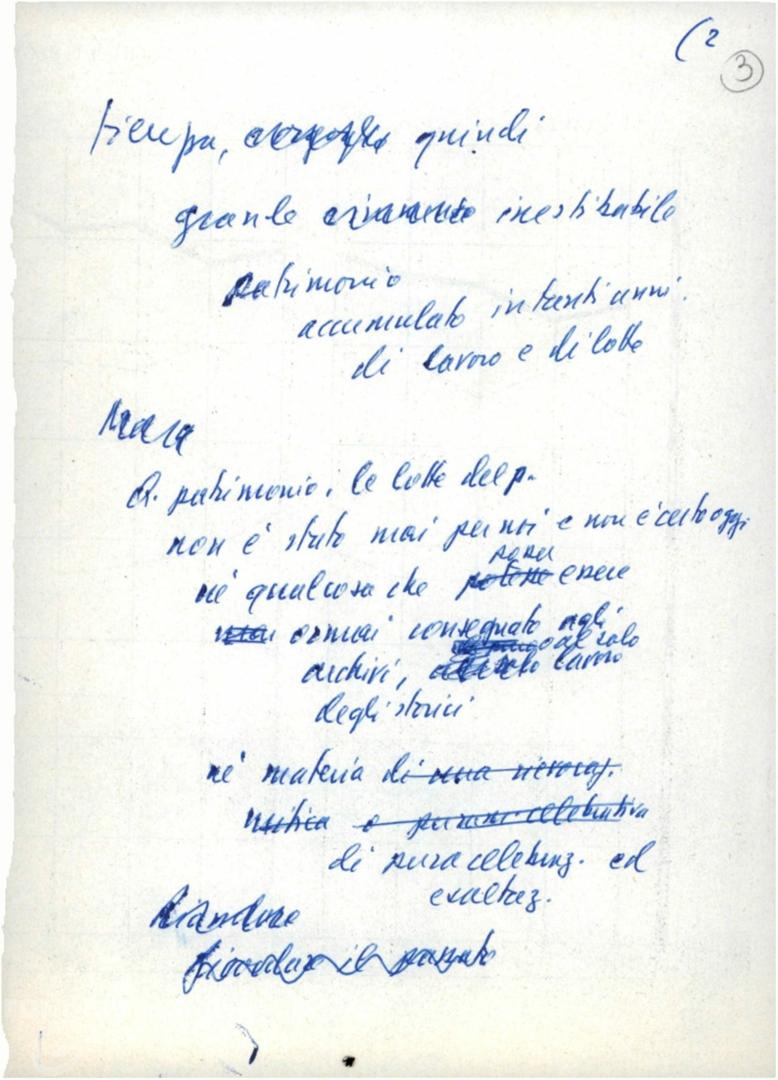 (2
3
quindi
grande inestimabile
patrimonio
accumulato in tanti anni.
di lavoro e di lotte
Q. patrimonio, le lotte del p.
non è stato mai per noi e non è certo oggi
possa
né qualcosa che potesse essere
ormai consegnato agli
o al solo
archivi, lavoro
degli storici
né materia di una rievocaz.
mitica o puram. celebrativa
di pura celebraz. ed
esaltaz.
il passato